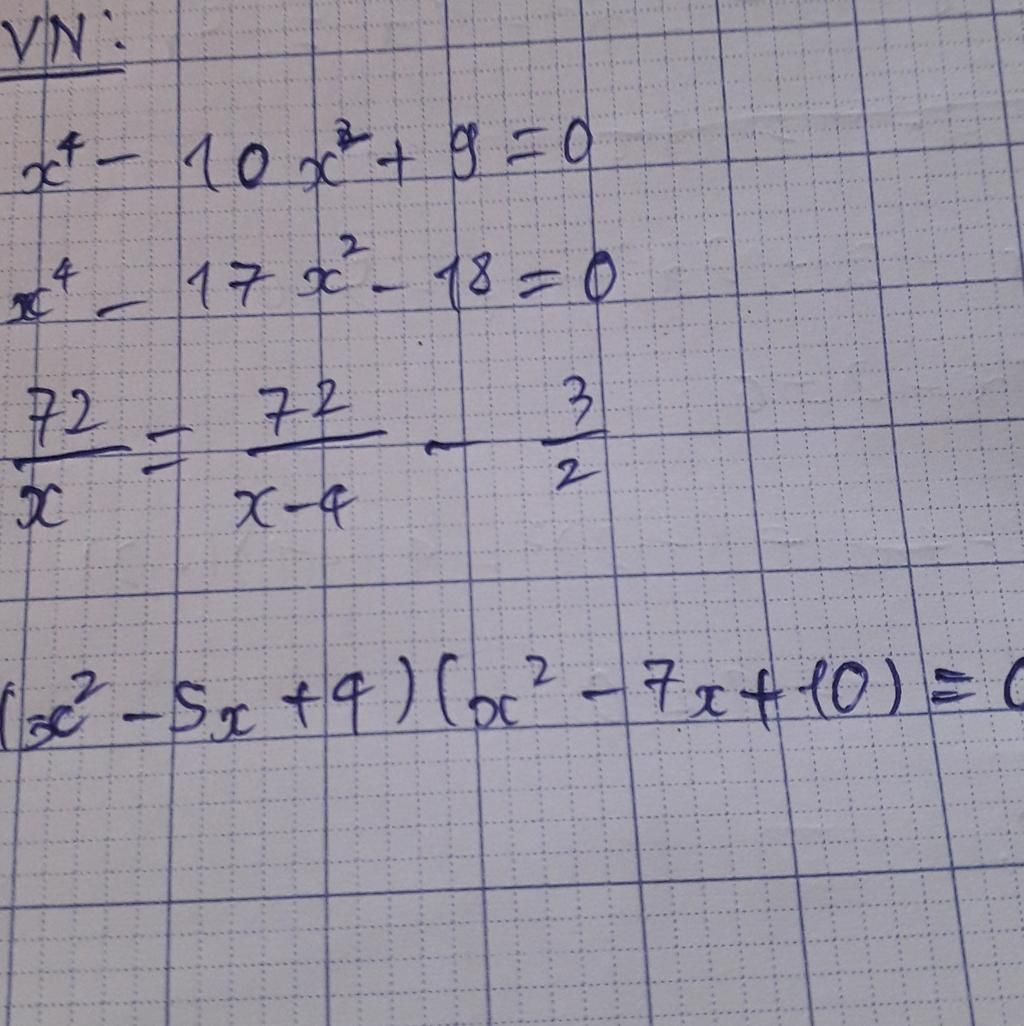 VN:
x⁴ - 10x² + 9 = 0
x⁴ - 17x² - 18 = 0
72/x = 72/(x-4) - 3/2
(x² - 5x + 4)(x² - 7x + 10) = 0